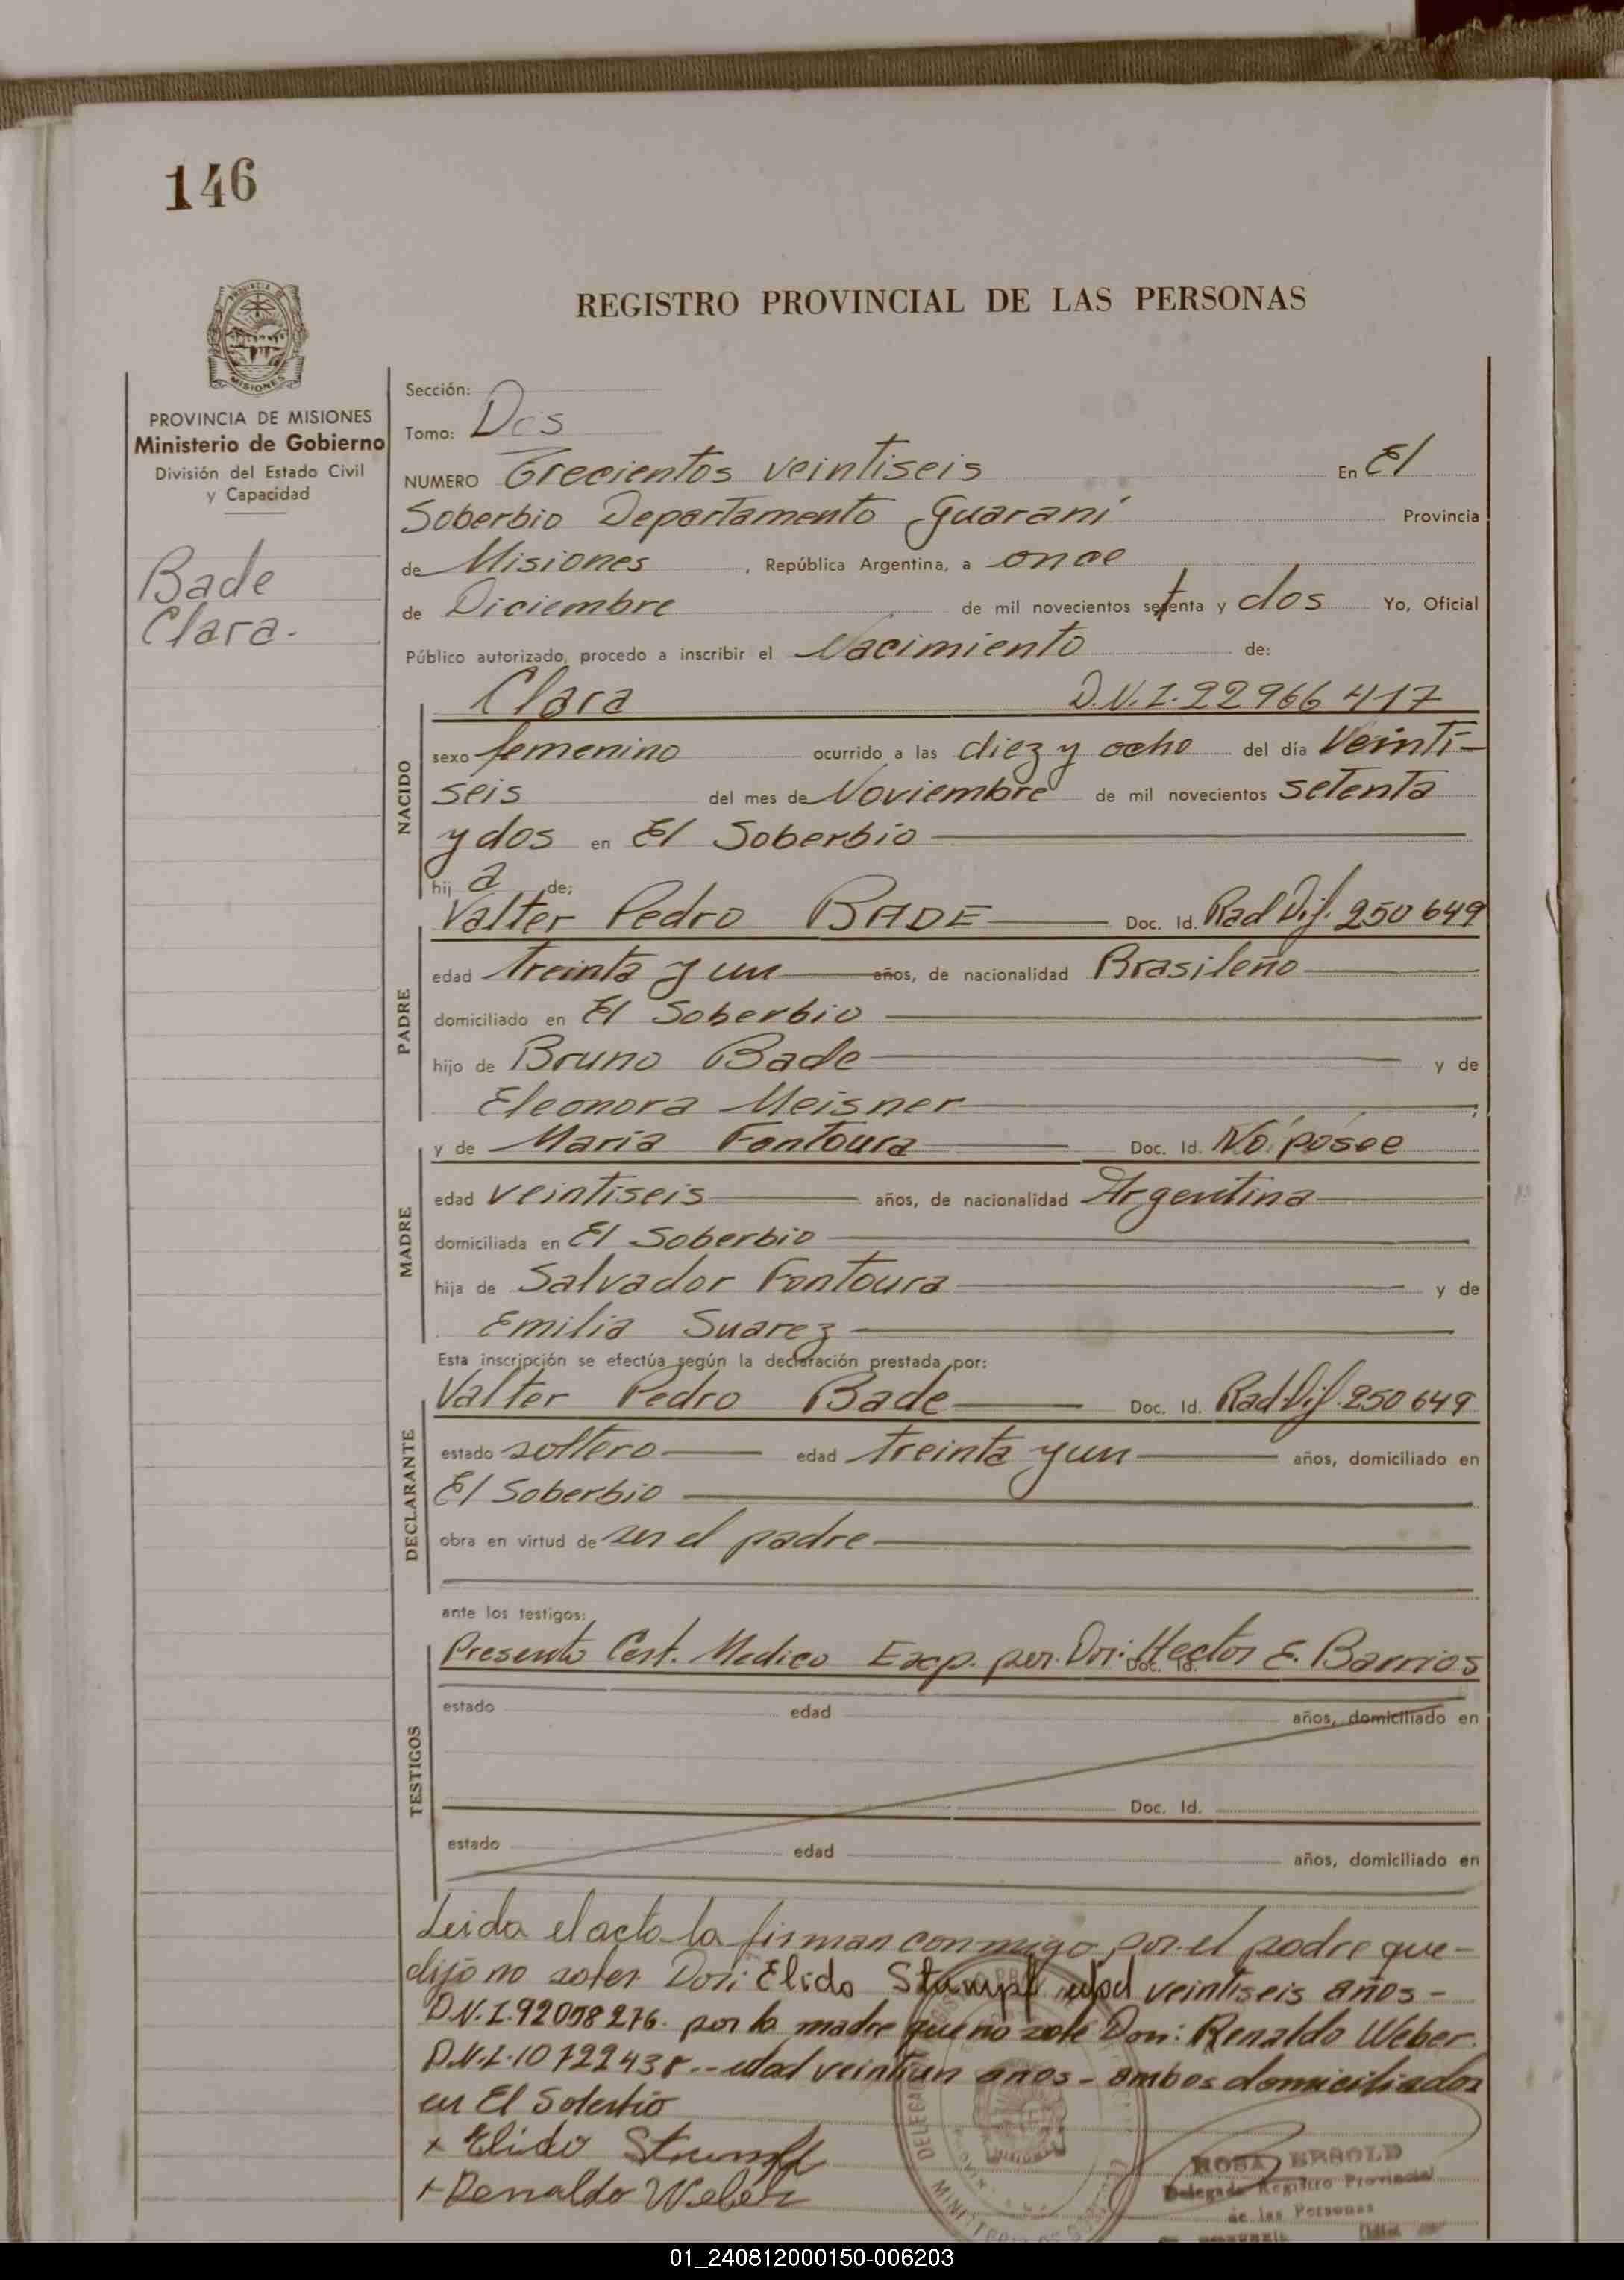 146
REGISTRO PROVINCIAL DE LAS PERSONAS
PROVINCIA DE
MISIONES
PROVINCIA DE MISIONES
Ministerio de Gobierno
División del Estado Civil
y Capacidad
Bade
Clara.
Sección:
Tomo: Dos
NUMERO Trecientos veintiseis En El
Soberbio Departamento Guaraní Provincia
de Misiones, República Argentina, a once
de Diciembre de mil novecientos setenta y dos Yo, Oficial
Público autorizado, procedo a inscribir el Nacimiento de:
Clara D.N.I. 22966417
NACIDO
sexo femenino ocurrido a las diez y ocho del día Veinti-
seis del mes de Noviembre de mil novecientos setenta
y dos en El Soberbio
hij a de;
Valter Pedro BADE Doc. Id. Rad Dif. 250649
PADRE
edad treinta y un años, de nacionalidad Brasileño
domiciliado en El Soberbio
hijo de Bruno Bade y de
Eleonora Meisner
y de Maria Fontoura Doc. Id. No posee
MADRE
edad veintiseis años, de nacionalidad Argentina
domiciliada en El Soberbio
hija de Salvador Fontoura y de
Emilia Suarez
Esta inscripción se efectúa según la declaración prestada por:
Valter Pedro Bade Doc. Id. Rad Dif. 250649
DECLARANTE
estado soltero edad treinta y un años, domiciliado en
El Soberbio
obra en virtud de ser el padre
ante los testigos:
Presento Cert. Medico Exp. por. Dr: Hector E. Barrios
Doc. Id.
TESTIGOS
estado edad años, domiciliado en
Doc. Id.
estado edad años, domiciliado en
Leida el acta la firman conmigo por el padre que-
dijo no saber Don: Elido Stumpf edad veintiseis años-
D.N.I. 92008276. por la madre que no sabe Don: Renaldo Weber.
D.N.I. 10722438.- edad veintiun anos - ambos domiciliados
en El Soberbio
x Elido Stumpf
+ Renaldo Weber
ROSA
Delegada Registro Provincial
de las Personas
01_240812000150-006203